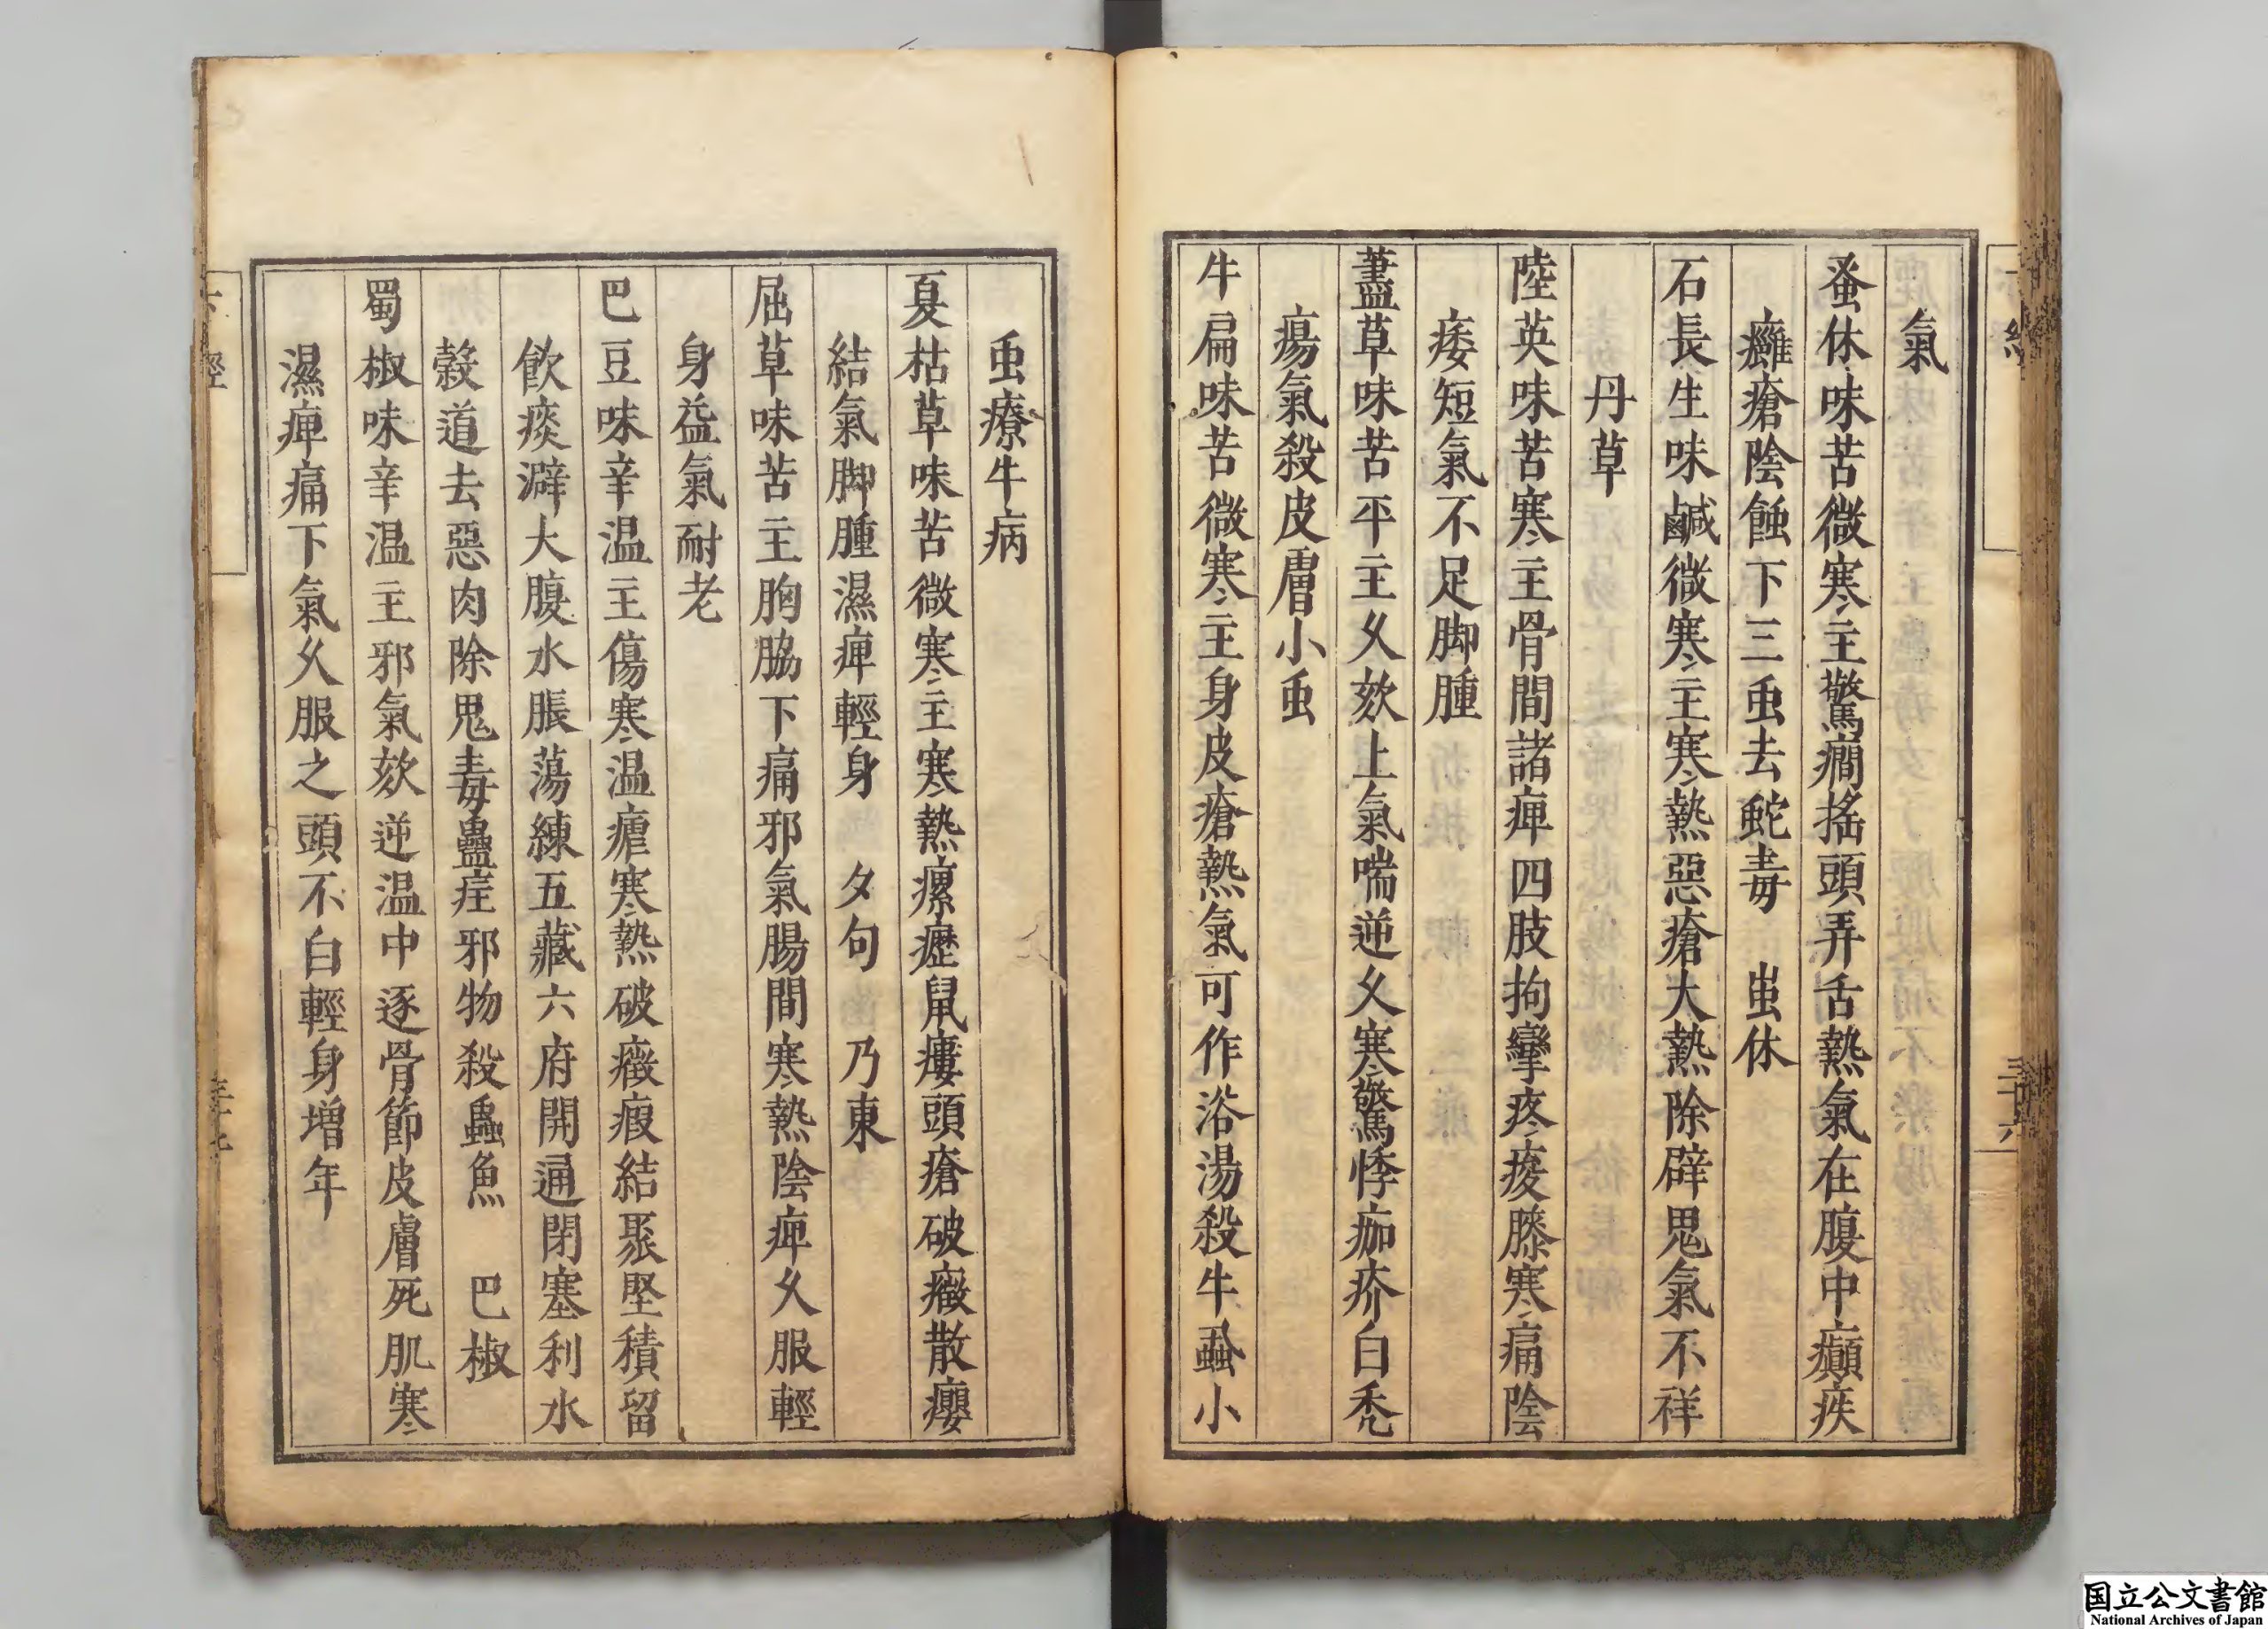 氣
蚤休味苦微寒主驚癎搖頭弄舌熱氣在腹中癲疾
癰瘡陰蝕下三䖝去蛇毒　蚩休
石長生味鹹微寒主寒熱惡瘡大熱除辟鬼氣不祥
丹草
陸英味苦寒主骨間諸痺四肢拘攣疼痠膝寒痛陰
痿短氣不足脚腫
藎草味苦平主乆欬上氣喘逆乆寒驚悸痂疥白禿
瘍氣殺皮膚小䖝
牛扁味苦微寒主身皮瘡熱氣可作浴湯殺牛蝨小
䖝療牛病
夏枯草味苦微寒主寒熱瘰癧鼠瘻頭瘡破癥散癭
結氣脚腫濕痺輕身　夕句　乃東
屈草味苦主胸脇下痛邪氣腸間寒熱陰痺乆服輕
身益氣耐老
巴豆味辛温主傷寒温瘧寒熱破癥瘕結聚堅積留
飲痰澼大腹水脹蕩練五藏六府開通閉塞利水
糓道去惡肉除鬼毒蠱疰邪物殺蟲魚　巴椒
蜀椒味辛温主邪氣欬逆温中逐骨節皮膚死肌寒
濕痺痛下氣乆服之頭不白輕身增年
国立公文書館
National Archives of Japan